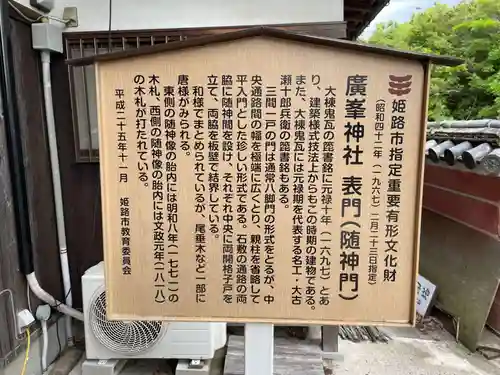 姫路市指定重要有形文化財
(昭和四十二年(一九六七)二月二十三日指定)
廣峯神社 表門(随神門)
大棟鬼瓦の箆書銘に元禄十年(一六九七)とあ
り、建築様式技法上からもこの時期の建物である。
また、大棟鬼瓦には元禄期を代表する名工・大古
瀬十郎兵衛の箆書銘もある。
三間一戸の門は通常八脚門の形式をとるが、
央通路間の幅を極端に広くとり、親柱を省略して
平入門とした珍しい形式である。石敷の通路の両
脇に随神間を設け、それぞれ中央に両開格子戸を
立て、両脇を板壁で結界している。
和様でまとめられているが、尾垂木など一部に
唐様がみられる。
東側の随神像の胎内には明和八年(一七七一)の
木札、西側の随神像の胎内には文政元年(一八一八)
の木札が打たれている。
平成二十五年十一月 姫路市教育委員会